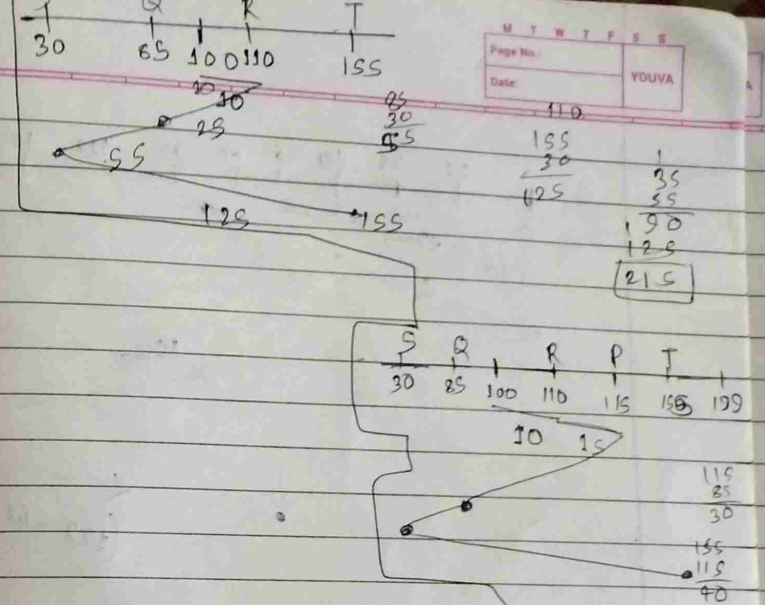 Q R T
30 85 100 110 155
M T W T F S S
Page No.:
Date:
YOUVA
10
25
55
125
155
85
30
55
110
155
30
125
1
35
55
90
125
215
S Q R P T
30 85 100 110 115 155 199
10 15
115
85
30
155
115
40